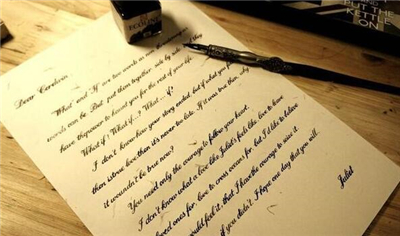 PUT THE
KETTLE
ON
Dear
What and If are two words as
words can be. But put them together side by side and they
have the power to haunt you for the rest of your life.
What if? What if?... What.... if?
I don't know how your story ended, but if what you
then is true love then it's never too late. If it was true then, why
it wouldn't be true now?
You need only the courage to follow your heart.
I don't know what a love like Juliet's feels like love to leave
loved ones for, love to cross oceans for but I'd like to believe
would feel it, that I have the courage to seize it.
if you didn't, I hope one day that you will.
Juliet